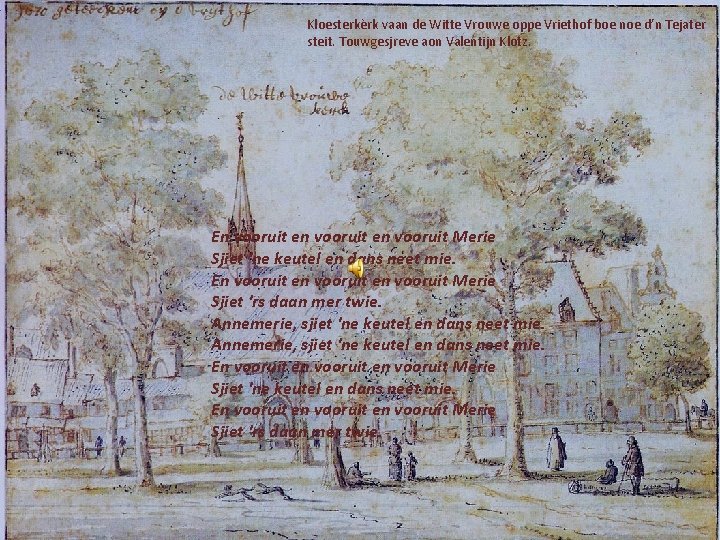 Kloesterkerk vaan de Witte Vrouwe oppe Vriethof boe noe d’n Tejater
steit. Touwgesjreve aon Valentijn Klotz.
de Witte vrouwe
kerck
En vooruit en vooruit en vooruit Merie
Sjiet ’ne keutel en dans neet mie.
En vooruit en vooruit en vooruit Merie
Sjiet ’rs daan mer twie.
Annemerie, sjiet ’ne keutel en dans neet mie.
Annemerie, sjiet ’ne keutel en dans neet mie.
En vooruit en vooruit en vooruit Merie
Sjiet ’ne keutel en dans neet mie.
En vooruit en vooruit en vooruit Merie
Sjiet ’rs daan mer twie.